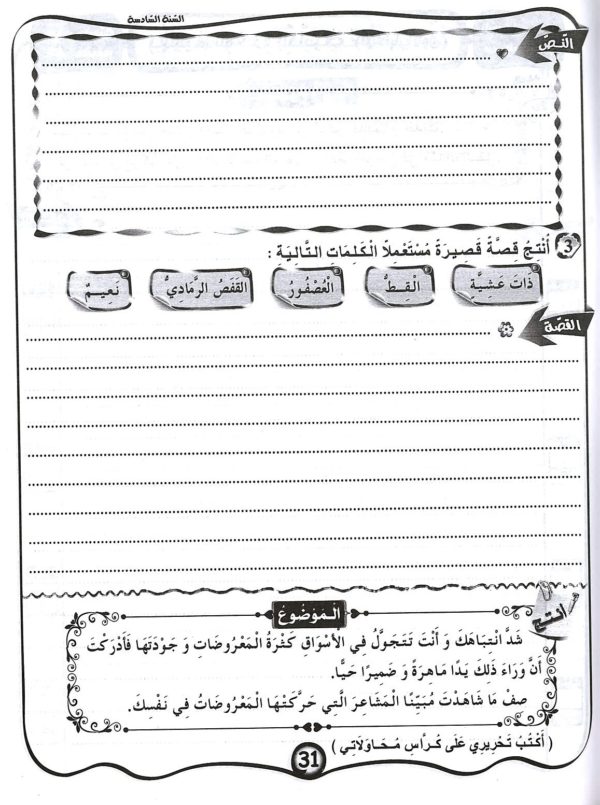 السّنة السّادسة
النّصّ
3 أُنْتِجُ قِصَّةً قَصِيرَةً مُسْتَعْمِلًا الْكَلِمَاتِ التَّالِيَةِ :
ذَاتَ عَشِيَّةٍ الْقِطُّ الْعُصْفُورُ القَفَصُ الرَّمَادِيُّ نَعِيمٌ
القصّة
أنتج
الْمَوْضُوعُ
شَدَّ انْتِبَاهَكَ وَ أَنْتَ تَتَجَوَّلُ فِي الأَسْوَاقِ كَثْرَةُ الْمَعْرُوضَاتِ وَ جَوْدَتَهَا فَأَدْرَكْتَ
أَنَّ وَرَاءَ ذَلِكَ يَدًا مَاهِرَةً وَ ضَمِيرًا حَيًّا.
صِفْ مَا شَاهَدْتَ مُبَيِّنًا الْمَشَاعِرَ الَّتِي حَرَّكَتْهَا الْمَعْرُوضَاتُ فِي نَفْسِكَ.
( أَكْتُبُ تَحْرِيرِي عَلَى كُرَّاسِ مُحَاوَلَاتِي )
31